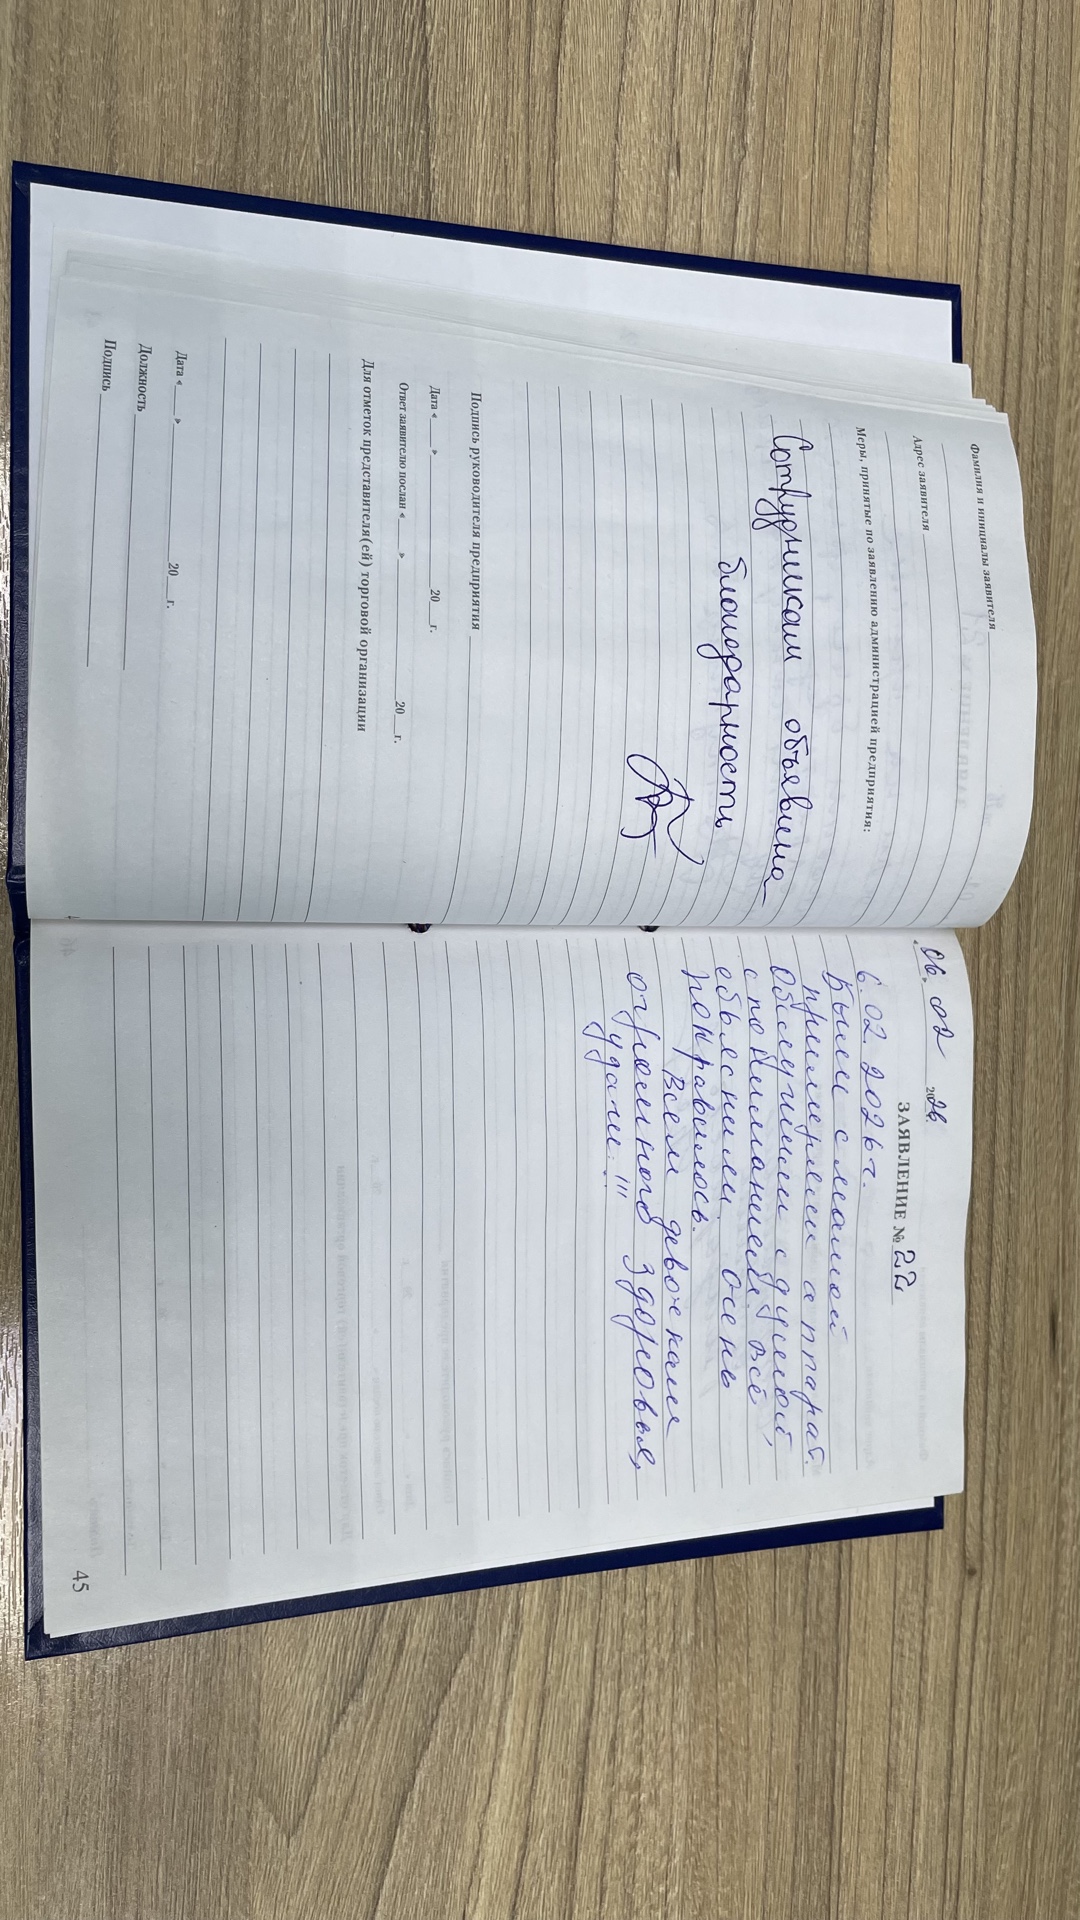 Фамилия и инициалы заявителя
Адрес заявителя
Меры, принятые по заявлению администрацией предприятия:
Сотрудникам объявлена
благодарность
Подпись руководителя предприятия
Дата «___» ___ 20__г.
Ответ заявителю послан «___» ___ 20__г.
Для отметок представителя(ей) торговой организации
Дата «___» ___ 20__г.
Должность
Подпись
06. 02 2026
ЗАЯВЛЕНИЕ № 22
6. 02. 2026 г.
Были с мамой
примеряли аппарат.
Обслужили с душой,
с пониманием, всё
объяснили. Очень
понравилось.
Всем девочкам
огромного здоровья,
удачи!!!
45